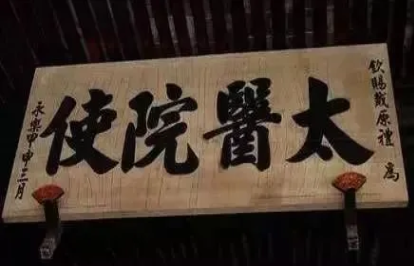 欽賜戴原禮為
太醫院使
永樂甲申三月